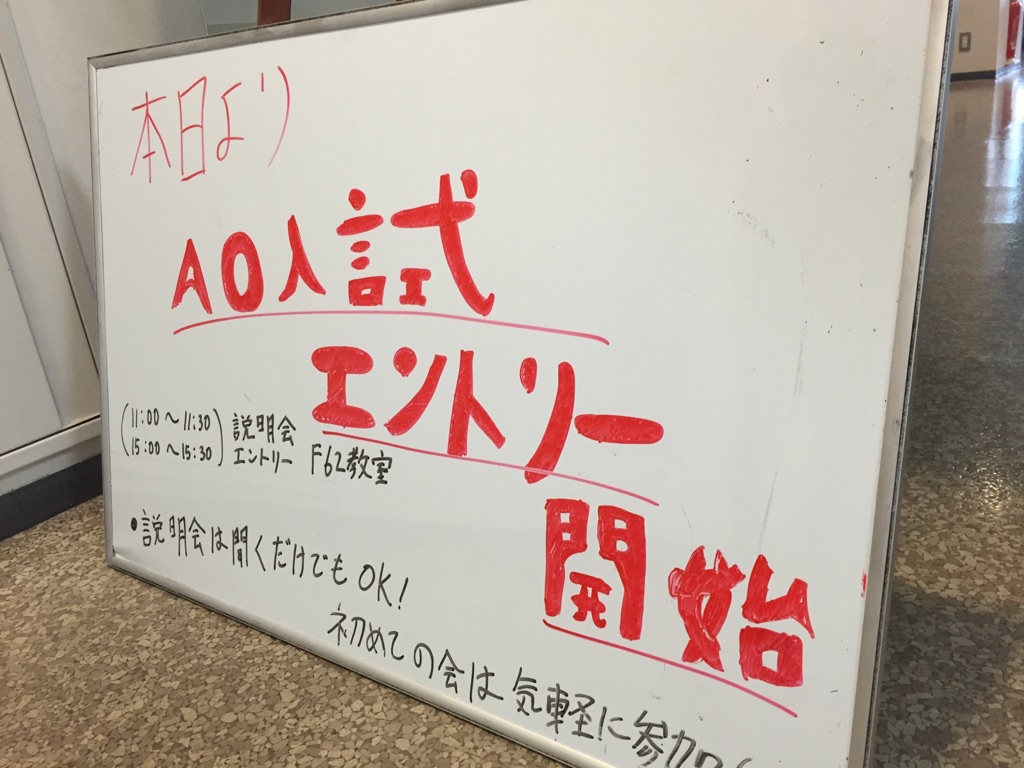 本日より
AO入試
エントリー
開始
(11:00〜11:30) 説明会
(15:00〜15:30) エントリー F62教室
•説明会は聞くだけでもOK!
初めての会は気軽に参加